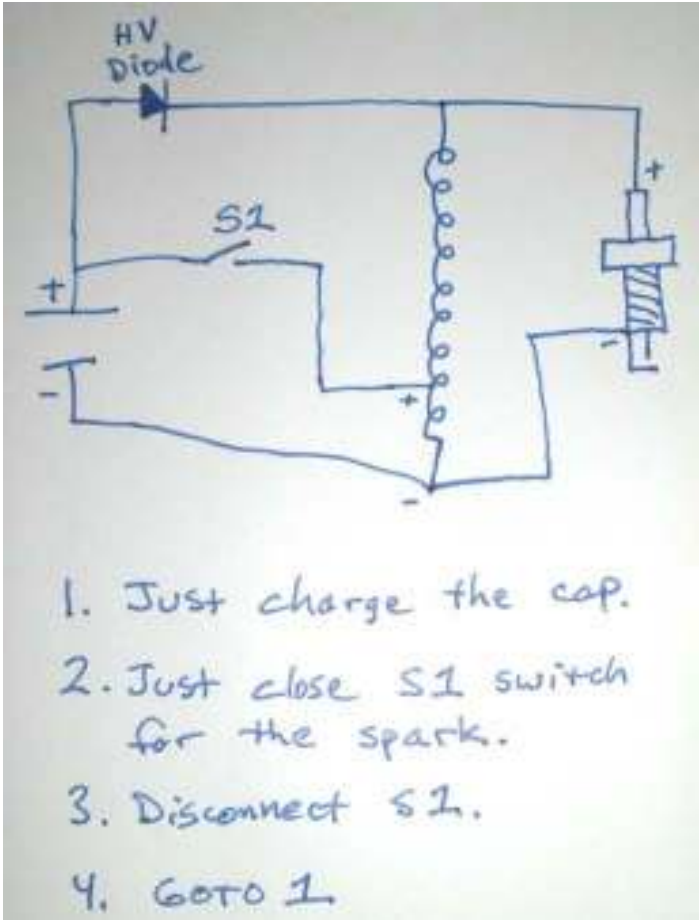 HV
Diode
S1
+
+
-
+
-
-
1. Just charge the cap.
2. Just close S1 switch
for the spark.
3. Disconnect S1.
4. GOTO 1